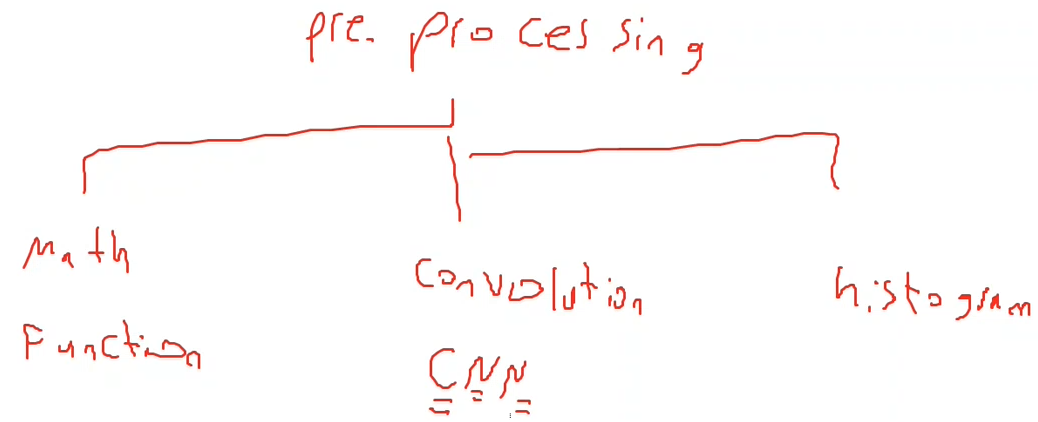 pre. processing
Math
Function
Convolution
CNN
histogram